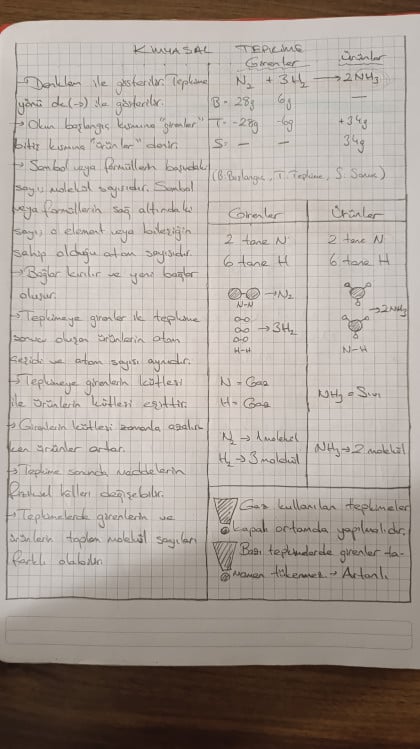 KİMYASAL TEPKİME
→ Denklem ile gösterilir. Tepkime
yönü de (→) ile gösterilir.
→ Okun başlangıç kısmına "girenler"
bitiş kısmına "ürünler" denir.
→ Sembol veya formüllerin başındaki
sayı, molekül sayısıdır. Sembol
veya formüllerin sağ altındaki
sayı, o element veya bileşiğin
sahip olduğu atom sayısıdır.
→ Bağlar kırılır ve yeni bağlar
oluşur.
→ Tepkimeye girenler ile tepkime
sonucu oluşan ürünlerin atom
çeşidi ve atom sayısı aynıdır.
→ Tepkimeye girenlerin kütlesi
ile ürünlerin kütlesi eşittir.
→ Girenlerin kütlesi zamanla azalır
ken ürünler artar.
→ Tepkime sonunda maddelerin
fiziksel halleri değişebilir.
→ Tepkimelerde girenlerin ve
ürünlerin toplam molekül sayıları
farklı olabilir.
Girenler Ürünler
N₂ + 3H₂ → 2NH₃
B = 28g 6g —
T = -28g -6g +34g
S = — — 34g
(B: Başlangıç, T: Tepkime, S: Sonuç)
Girenler
2 tane N
6 tane H
→ N₂
N-N
→ 3H₂
H-H
N = Gaz
H = Gaz
N₂ → 1 molekül
H₂ → 3 molekül
Ürünler
2 tane N
6 tane H
→ 2NH₃
N-H
NH₃ = Sıvı
NH₃ → 2 molekül
Gaz kullanılan tepkimeler
kapalı ortamda yapılmalıdır.
Bazı tepkimelerde girenler ta-
mamen tükenmez → Artanlı